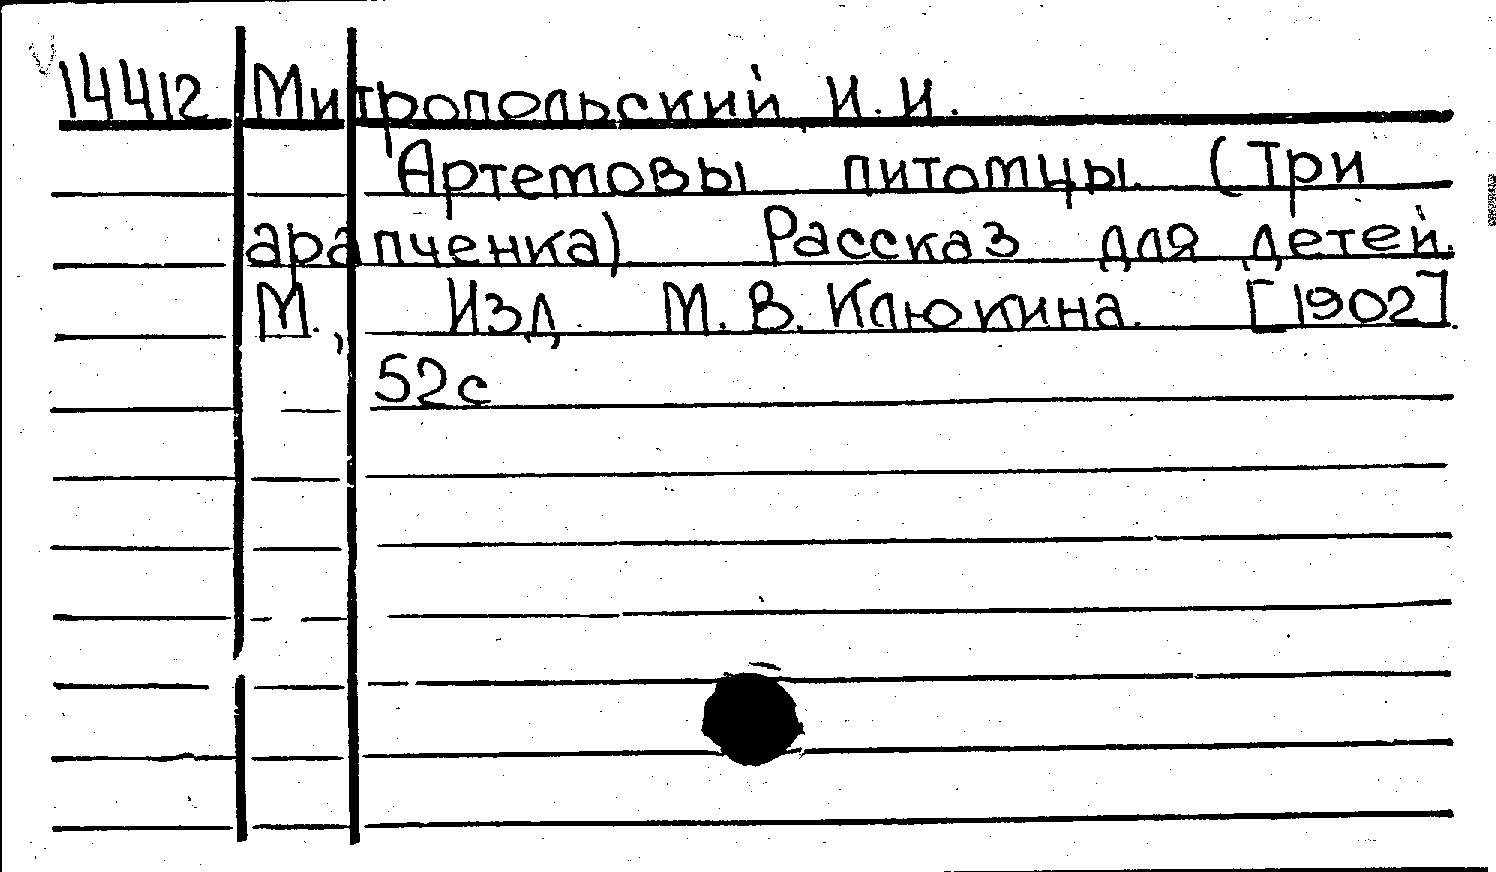 14412 Митропольский И. И.
Артемовы питомцы. (Три
арапченка) Рассказ для детей.
М., Изд. М. В. Клюкина. [1902].
52с